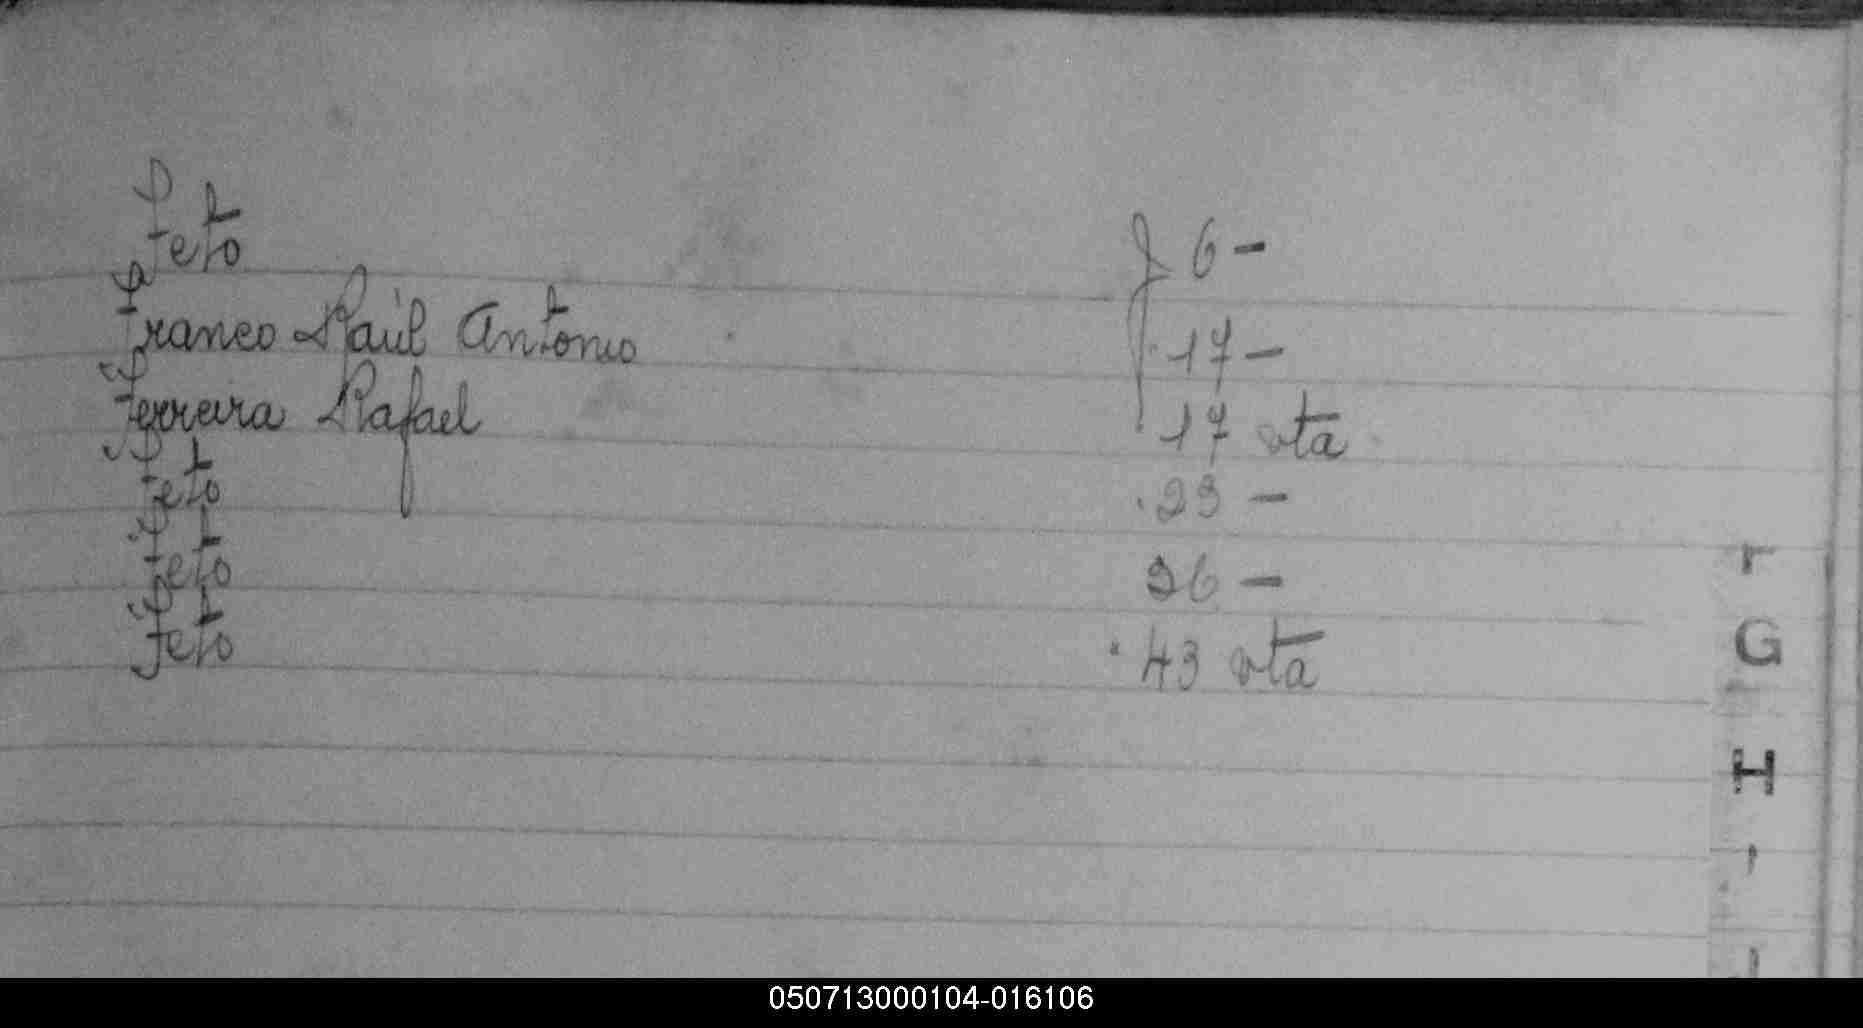 Feto f 6 -
Franco Raúl Antonio 17 -
Ferreira Rafael 17 vta
Feto 23 -
Feto 26 -
Feto 43 vta
F
G
H
I
J
050713000104-016106